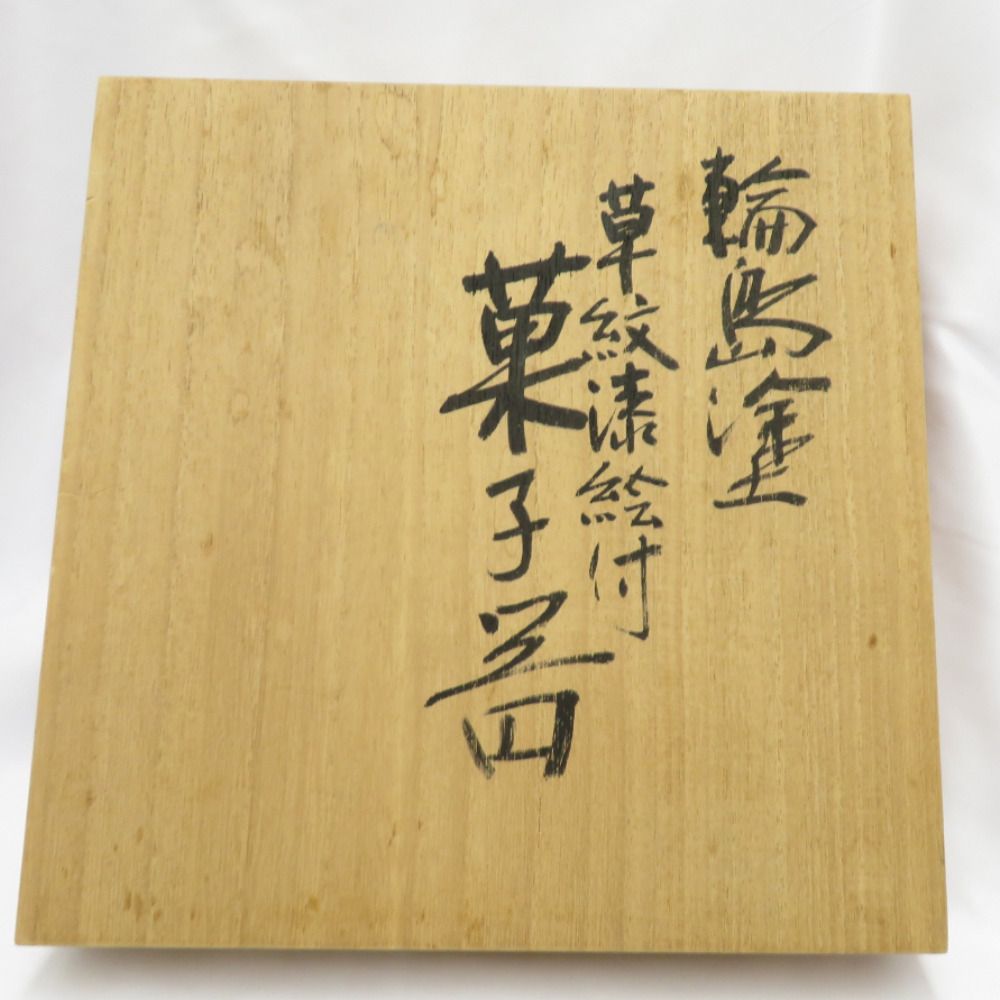 輪島塗
草紋漆絵付
菓子器